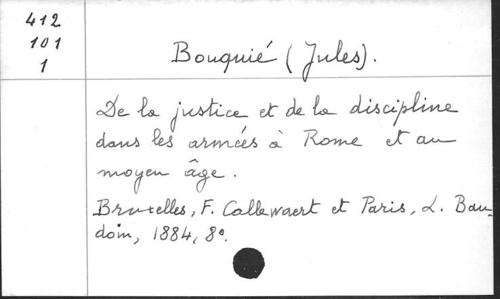 412
101
1
Bouquié (Jules).
De la justice et de la discipline
dans les armées à Rome et au
moyen âge.
Bruxelles, F. Callewaert et Paris, L. Bau-
doin, 1884, 8º.